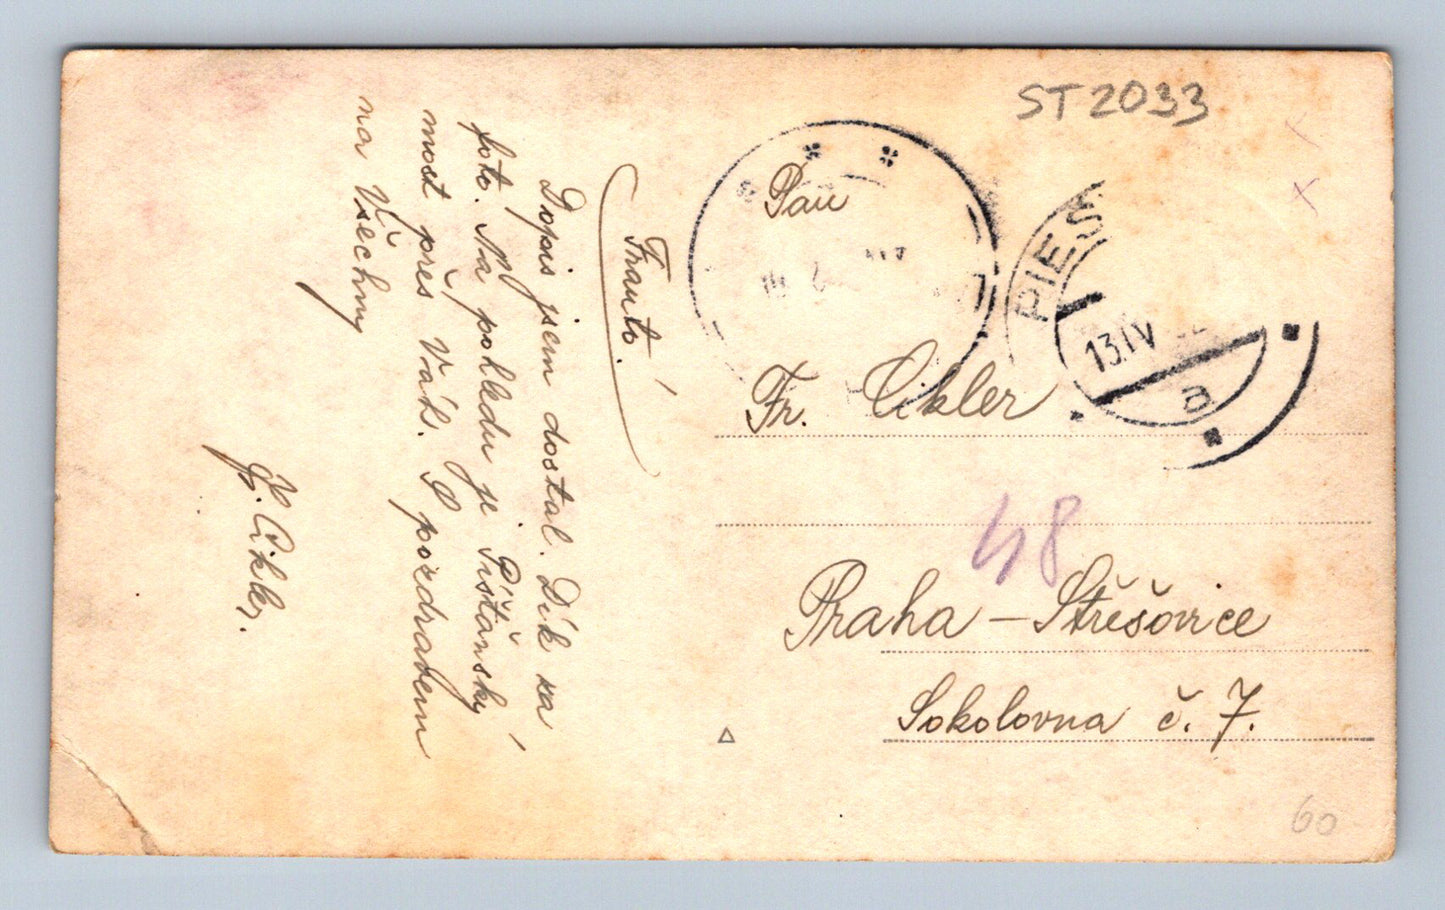 ST 2033
Franto.
Dopis jsem dostal. Dík za
foto. Na pohledu je Pišťanský
most přes Váh. S pozdravem
na Všechny
Cikler.
Pan
Fr. Cikler
48
Praha – Střešovice
Sokolovna č. 7.
PIEŠ
13.IV
a
60